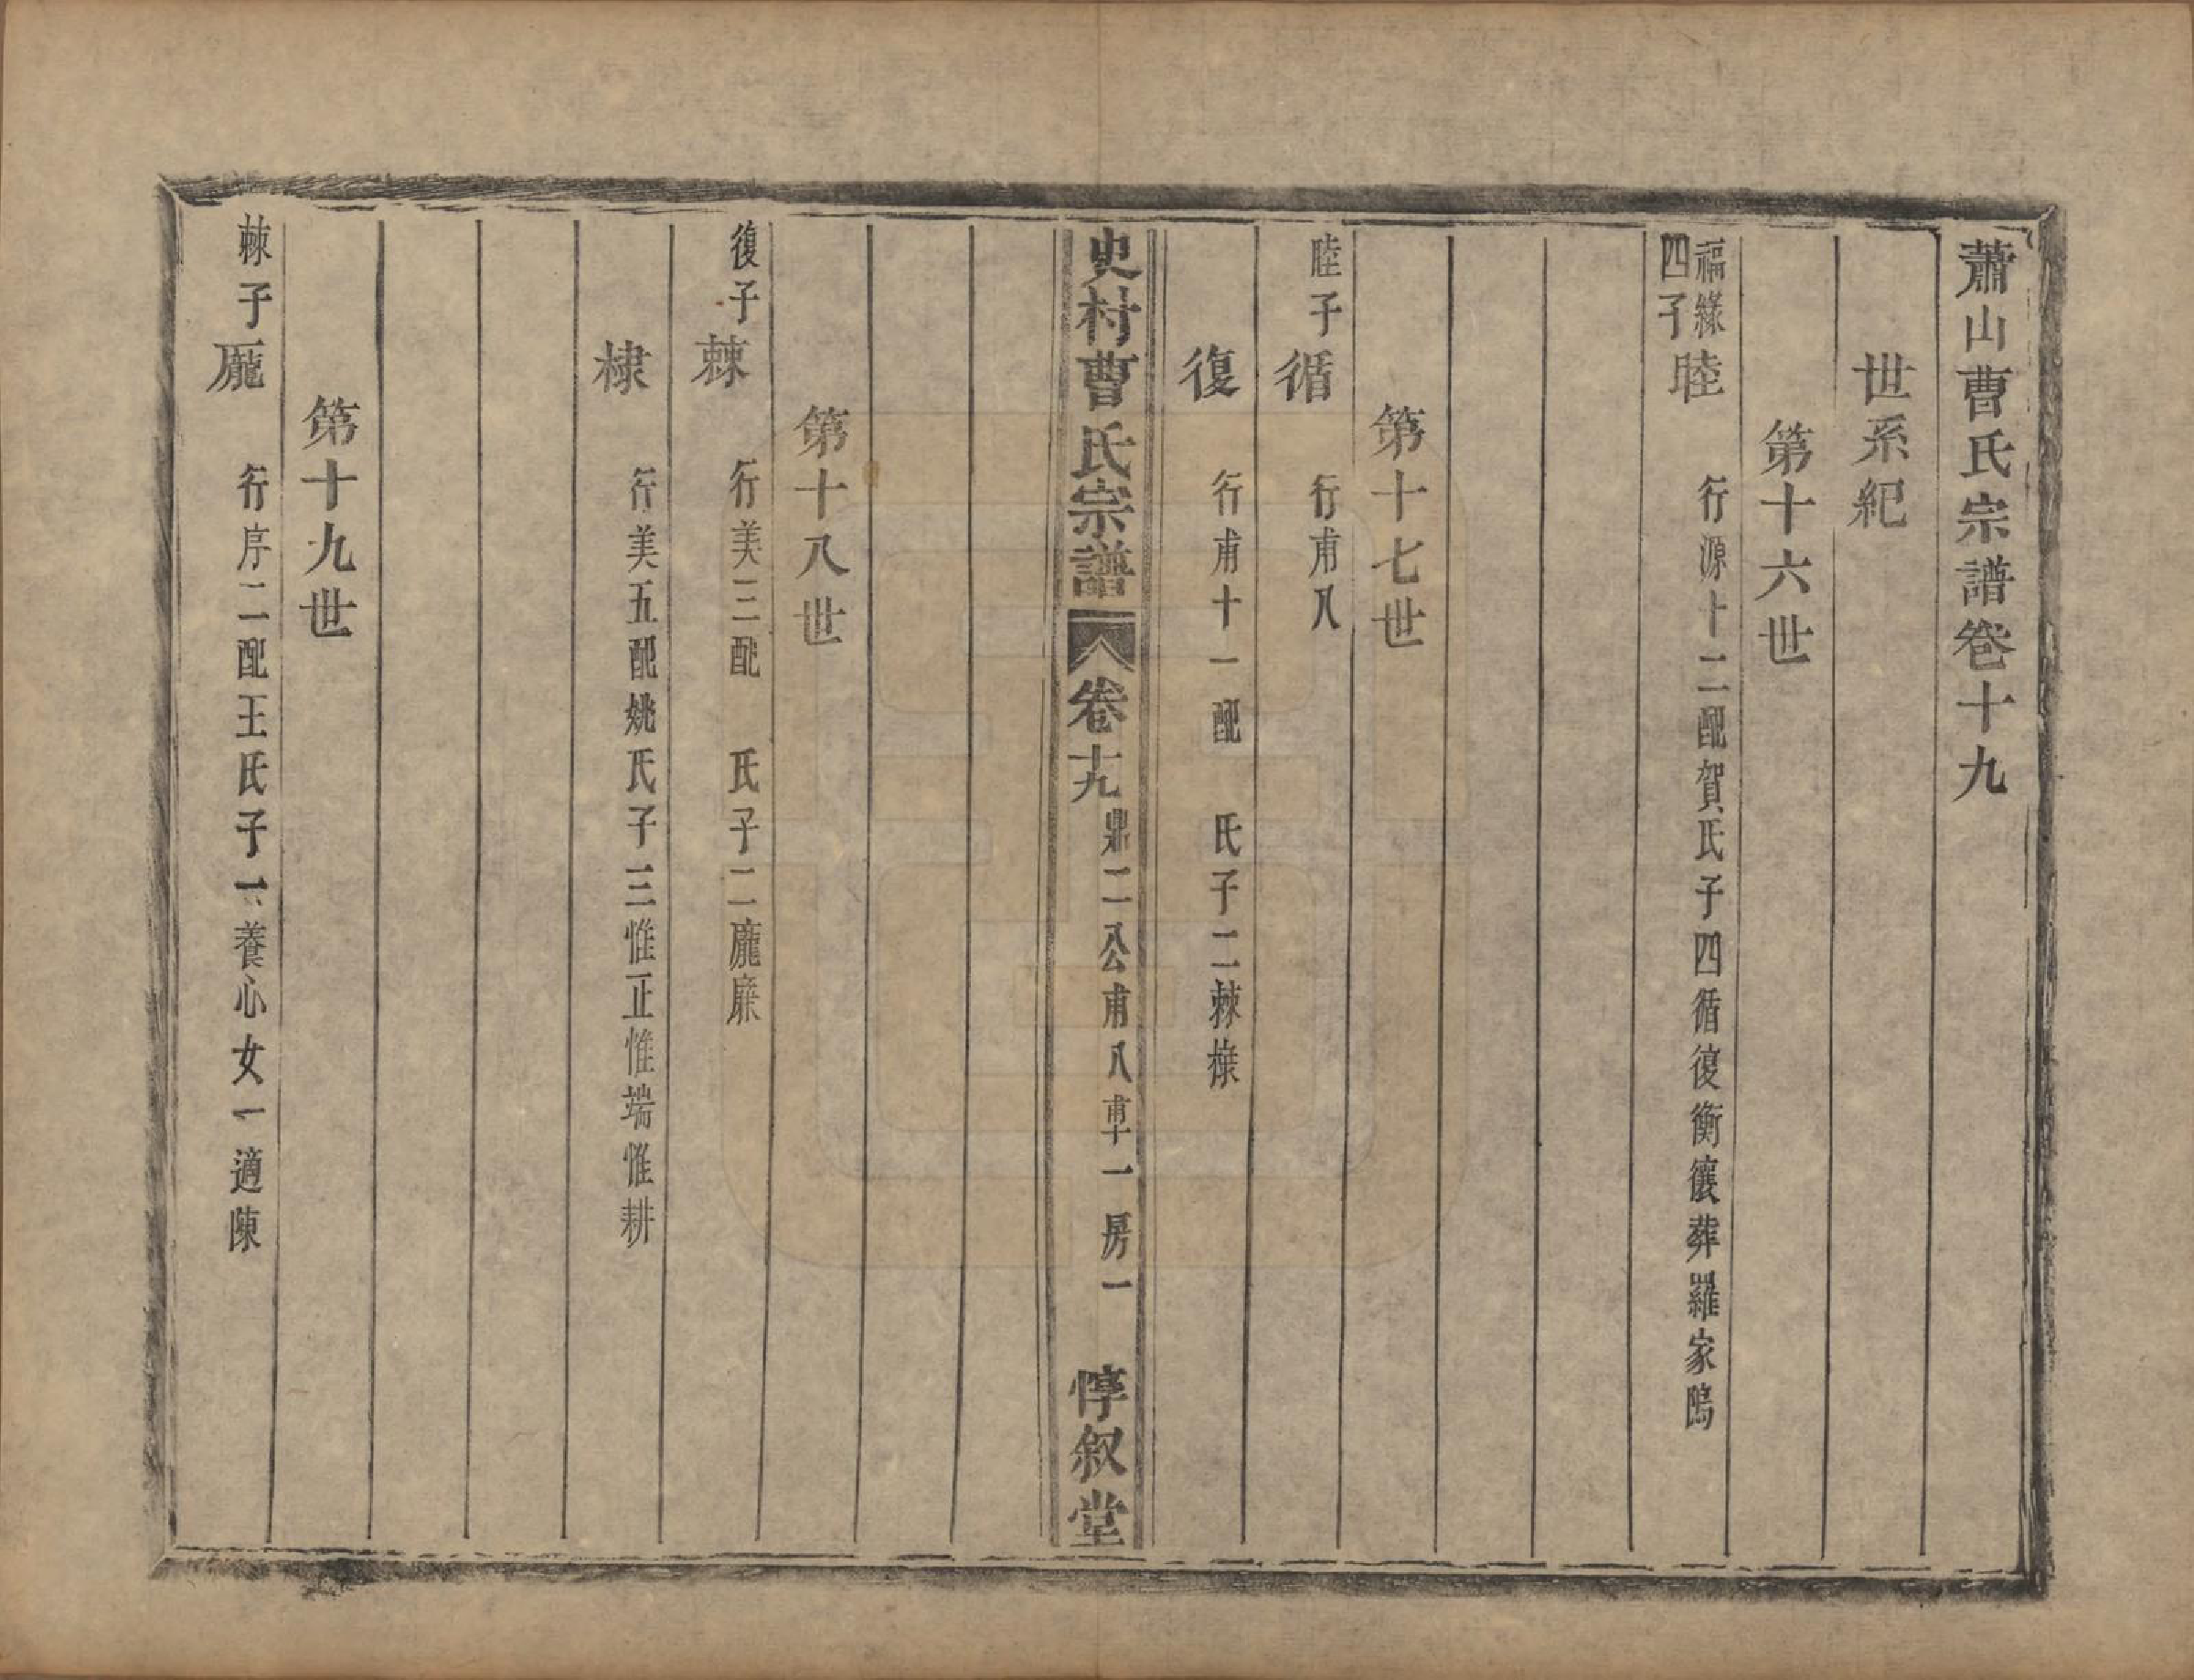 蕭山曹氏宗譜卷十九
世系紀
第十六世
福緣四子
睦 行源十二配賀氏子四循復衡儴葬羅家隖
第十七世
睦子
循 行甫八
復 行甫十一配 氏子二棘棣
史村曹氏宗譜 卷十九 鼎二公甫八甫十一房一 惇叙堂
第十八世
復子
棘 行美三配 氏子二龐廉
棣 行美五配姚氏子三惟正惟端惟耕
第十九世
棘子
龐 行序二配王氏子一養心女一適陳